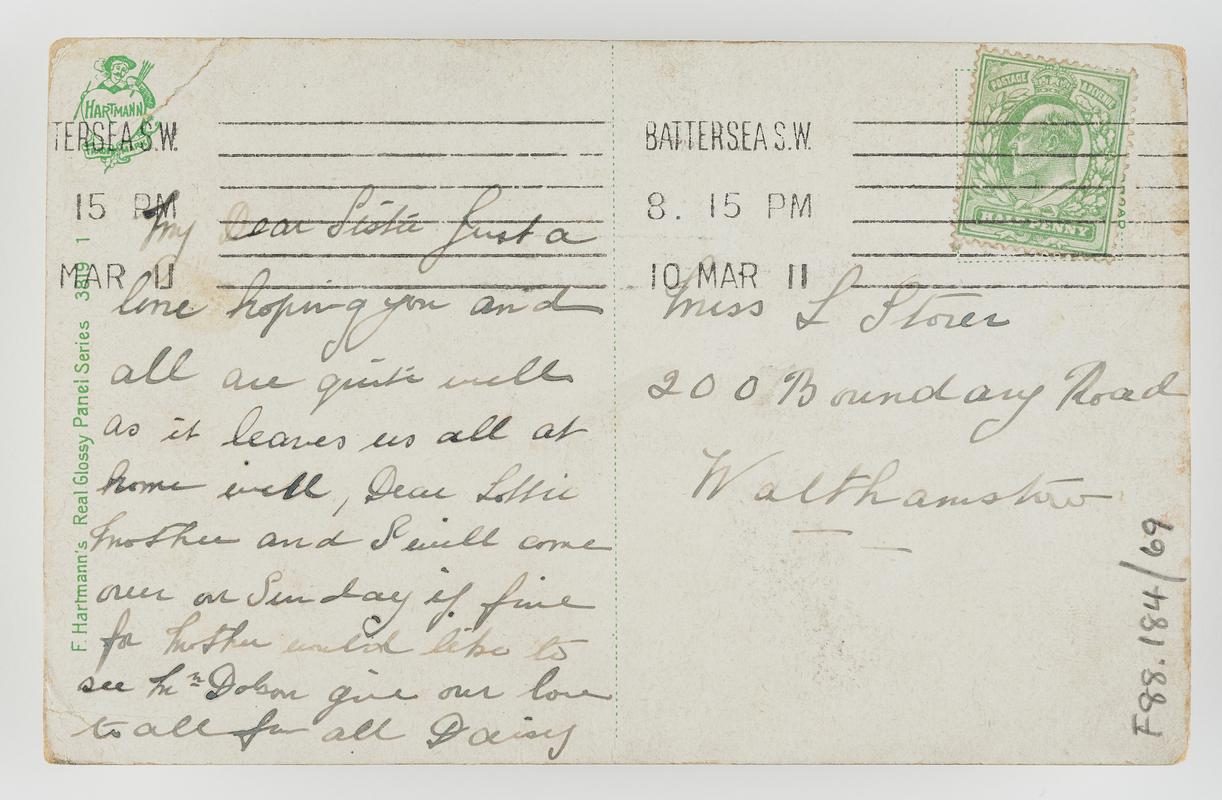 HARTMANN
TERSEA S.W.
15 PM
MAR 11
F. Hartmann's Real Glossy Panel Series 3819 1
My Dear Sister Just a
line hoping you and
all are quite well
as it leaves us all at
home well, Dear Lottie
Mother and I will come
over on Sunday if fine
for Mother would like to
see Mrs Dobson give our love
to all from all Daisy
BATTERSEA S.W.
8. 15 PM
10 MAR 11
POSTAGE REVENUE
HALFPENNY
Miss L Storer
200 Boundary Road
Walthamstow
F88.184/69